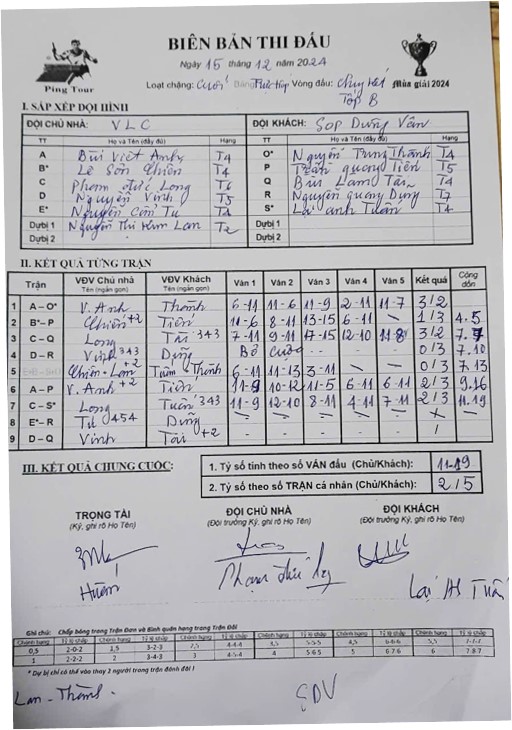 BIÊN BẢN THI ĐẤU
Ping Tour
Ngày 15 tháng 12 năm 2024
Loạt chặng: Cuối Bảng: Vòng đấu: Mùa giải 2024
Top B
I. SẮP XẾP ĐỘI HÌNH
ĐỘI CHỦ NHÀ: VLC ĐỘI KHÁCH: Sop Dưỡng Vân
TT Họ và Tên (đầy đủ) Hạng TT Họ và Tên (đầy đủ) Hạng
A Bùi Việt Anh T4 O* Nguyễn Trung Thành T4
B* Lê Sơn Chiên T4 P Trần quang Tiến T5
C Phạm đức Long T6 Q Bùi Lam Tài T4
D Nguyễn Vinh T5 R Nguyễn quang Dũng T7
E* Nguyễn Cẩm Tú T4 S* Lại anh Tuấn T4
Dựbị 1 Nguyễn Thi Kim Lan T2 Dựbị 1
Dựbị 2 Dựbị 2
II. KẾT QUẢ TỪNG TRẬN
Trận VĐV Chủ nhà (Tên ngắn gọn) VĐV Khách (Tên ngắn gọn) Ván 1 Ván 2 Ván 3 Ván 4 Ván 5 Kết quả Cộng dồn
1 A – O* V. Anh Thành 6-11 11-6 11-9 2-11 11-7 3/2
2 B*– P Chiên +2 Tiến 11-6 8-11 13-15 6-11 — 1/3 4.5
3 C – Q Long Tài 343 7-11 9-11 17-15 12-10 11-8 3/2 7.7
4 D – R Vinh 343 Dũng Bỏ cuộc - - - 0/3 7.10
5 Chiên - Lan +2 Tuấn Thành 6-11 11-13 3-11 - - 0/3 7.13
6 A – P V. Anh +2 Tiến 11-9 10-12 11-5 6-11 6-11 2/3 9.16
7 C – S* Long Tuấn 343 11-9 12-10 8-11 4-11 7-11 2/3 11.19
8 E*– R Tú 454 Dũng — — — — —
9 D – Q Vinh Tài +2 - - - - - /
III. KẾT QUẢ CHUNG CUỘC: 1. Tỷ số tính theo số VÁN đấu (Chủ/Khách): 11-19
2. Tỷ số theo số TRẬN cá nhân (Chủ/Khách): 2/5
TRỌNG TÀI ĐỘI CHỦ NHÀ ĐỘI KHÁCH
(Ký, ghi rõ Họ Tên) (Đội trưởng Ký, ghi rõ Họ Tên) (Đội trưởng Ký, ghi rõ Họ Tên)
Phạm đức Long
Lại A Tuấn
Ghi chú: Chấp bóng trong Trận Đơn và Bình quân hạng trong Trận Đôi
Chênh hạng Tỷ lệ chấp Chênh hạng Tỷ lệ chấp Chênh hạng Tỷ lệ chấp Chênh hạng Tỷ lệ chấp Chênh hạng Tỷ lệ chấp Chênh hạng Tỷ lệ chấp
0,5 2-0-2 1,5 3-2-3 2,5 4-4-4 3,5 5-5-5 4,5 6-6-6 5,5 7-7-7
1 2-2-2 2 3-4-3 3 4-5-4 4 5-6-5 5 6-7-6 6 7-8-7
* Dự bị chỉ có thể vào thay 2 người trong trận đánh đôi !
Lan - Thành .